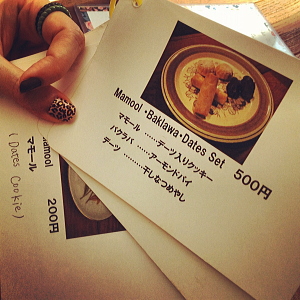 Mamool・Baklawa・Dates Set
500円
マモール ……デーツ入りクッキー
バクラバ ……アーモンドパイ
デーツ ………干しなつめやし
Mamool
マモール
(Dates Cookie)
200円